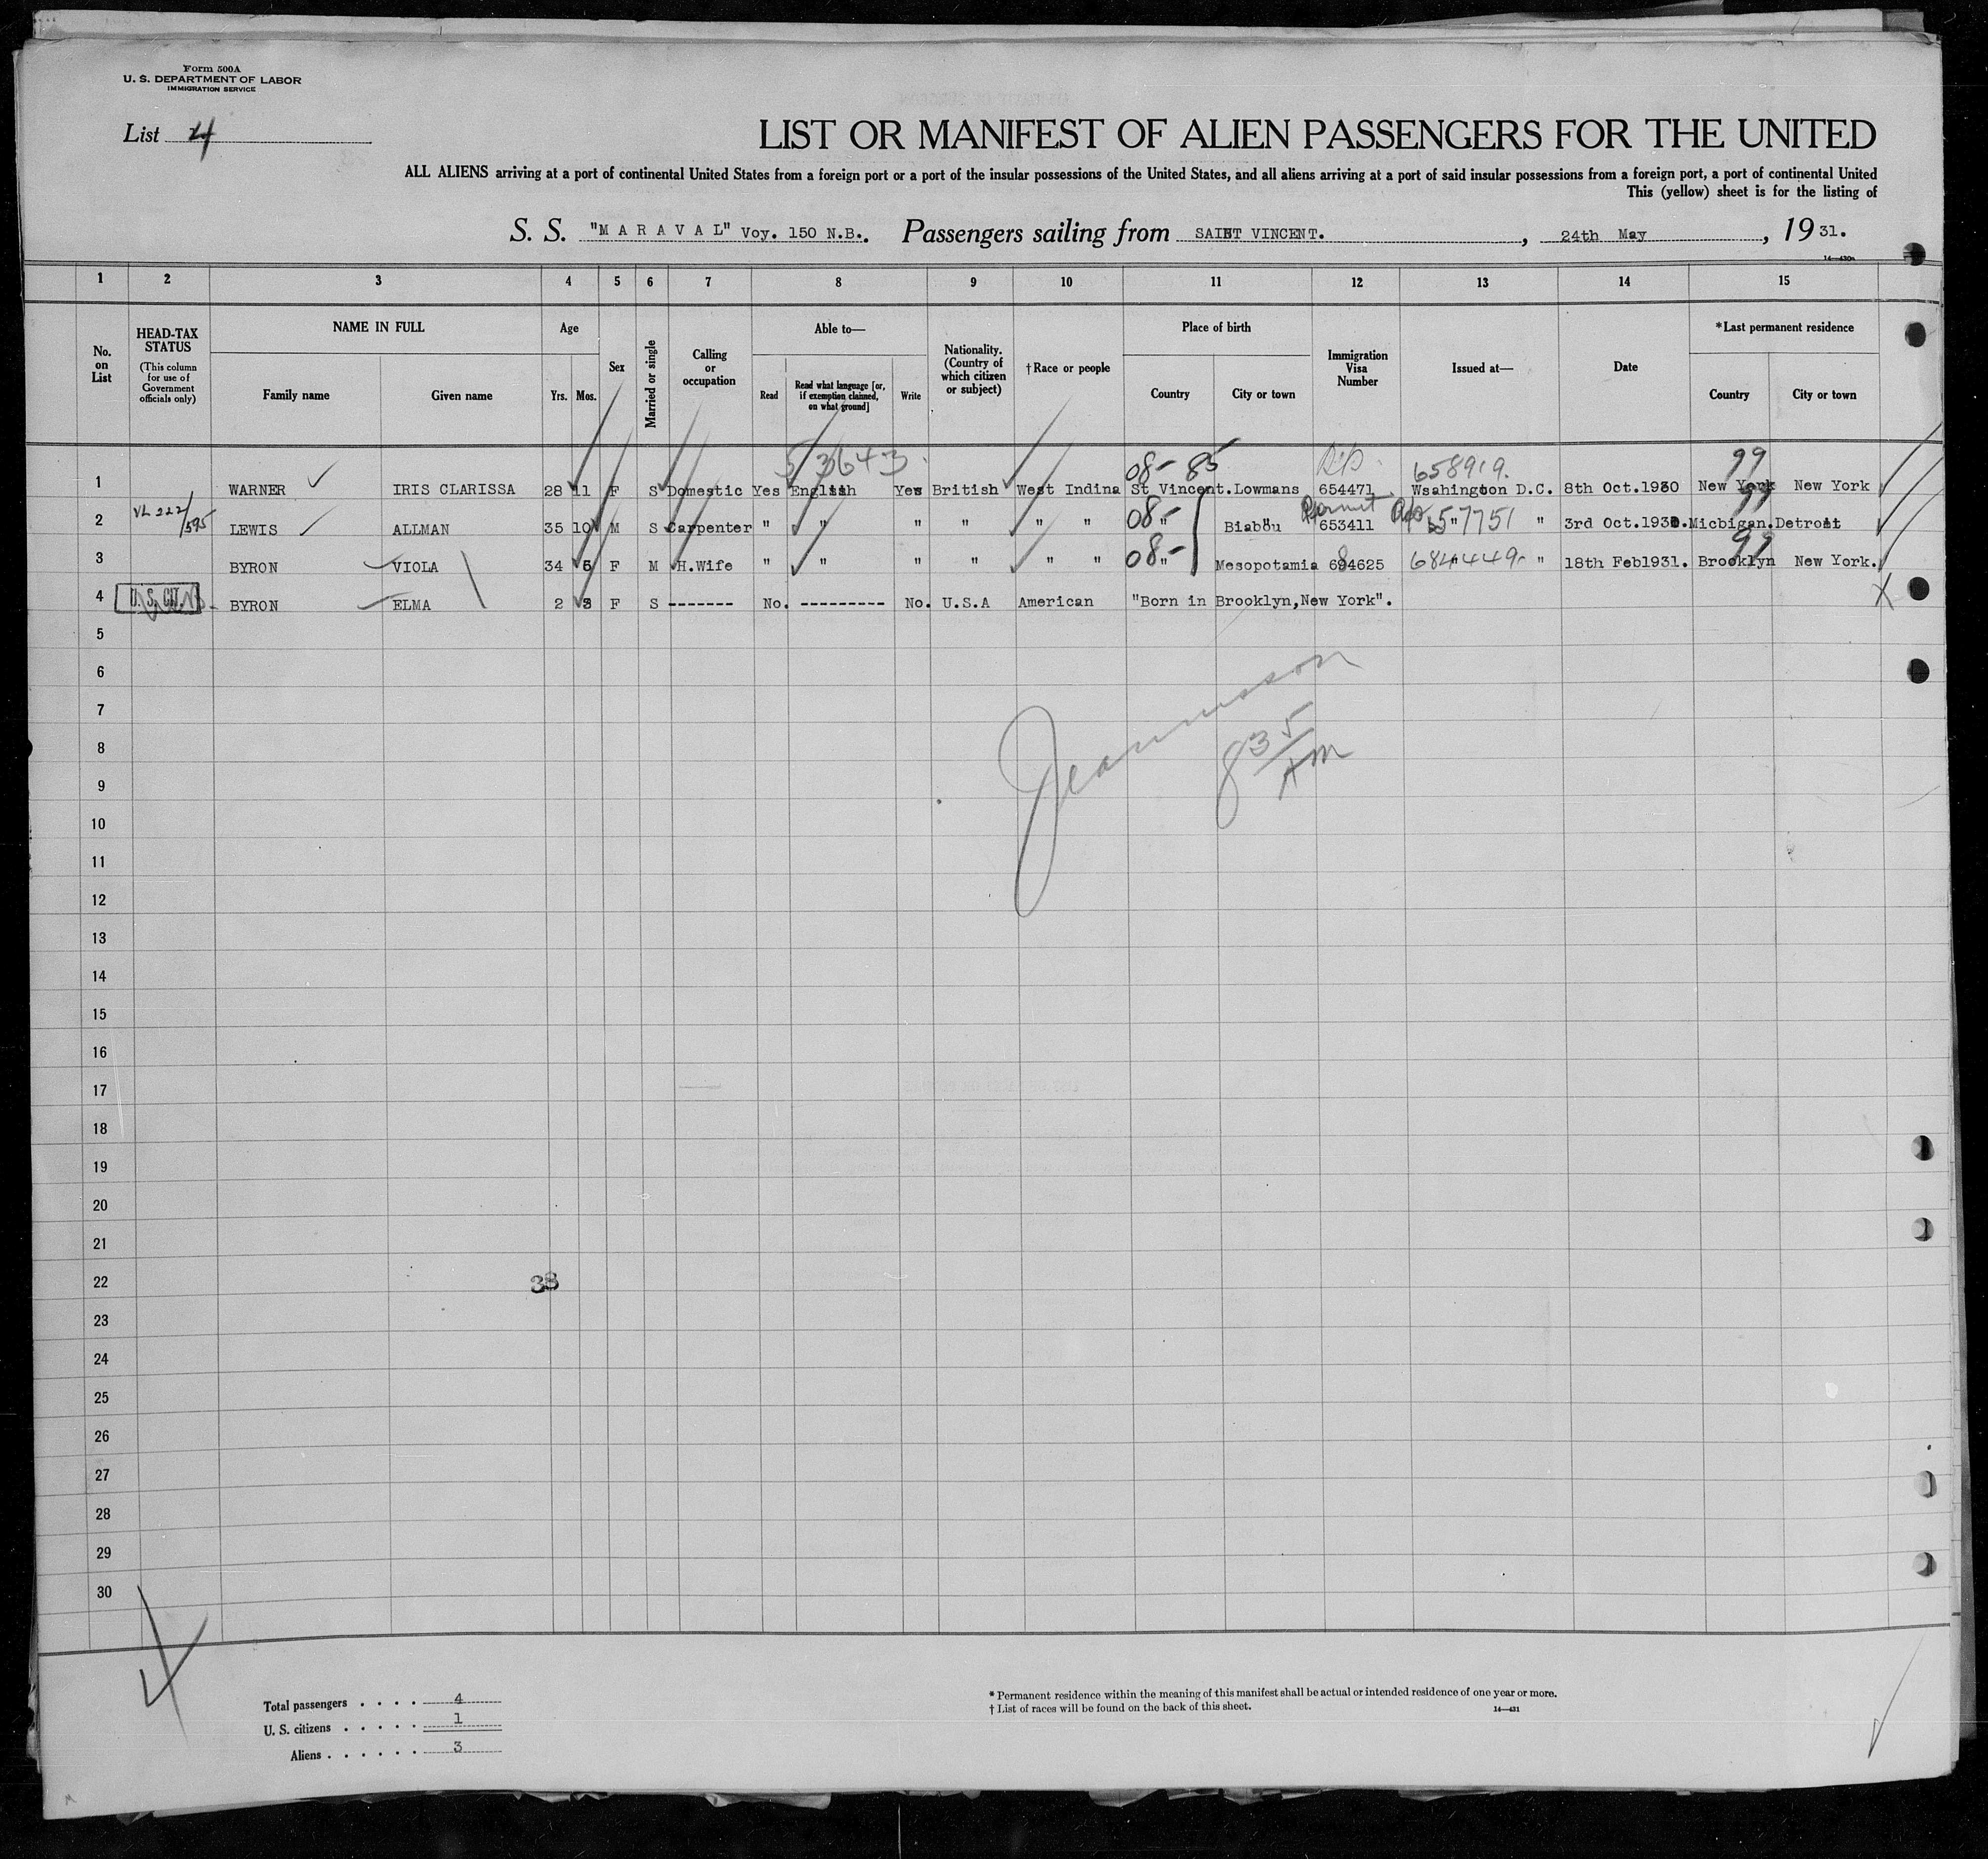 Form 500A
U. S. DEPARTMENT OF LABOR
IMMIGRATION SERVICE
List 4
LIST OR MANIFEST OF ALIEN PASSENGERS FOR THE UNITED
ALL ALIENS arriving at a port of continental United States from a foreign port or a port of the insular possessions of the United States, and all aliens arriving at a port of said insular possessions from a foreign port, a port of continental United
This (yellow) sheet is for the listing of
S. S. "M A R A V A L" Voy. 150 N.B. Passengers sailing from SAINT VINCENT. , 24th May , 19 31.
1 2 3 4 5 6 7 8 9 10 11 12 13 14 15
No. on List
HEAD-TAX STATUS
(This column for use of Government officials only)
NAME IN FULL
Family name Given name
Age
Yrs. Mos.
Sex
Married or single
Calling or occupation
Able to—
Read Read what language [or, if exemption claimed, on what ground] Write
Nationality. (Country of which citizen or subject)
† Race or people
Place of birth
Country City or town
Immigration Visa Number
Issued at—
Date
*Last permanent residence
Country City or town
53643. 08- 85 658919. 99
1 WARNER IRIS CLARISSA 28 11 F S Domestic Yes English Yes British West Indina St Vincent. Lowmans 654471 Wsahington D.C. 8th Oct.1930 New York New York
2 LEWIS ALLMAN 35 10 M S Carpenter " " " " " " 08- " Biabou Permit 653411 657751 " 3rd Oct.1930. Micbigan. Detroit
3 BYRON VIOLA 34 5 F M H.Wife " " " " " " 08- " Mesopotamia 684625 684449 " 18th Feb1931. Brooklyn New York. 99
4 U. S. CIT. BYRON ELMA 2 3 F S ------- No. --------- No. U.S.A American "Born in Brooklyn,New York".
5
6
7
8
9
10
11
12
13
14
15
16
17
18
19
20
21
22
23
24
25
26
27
28
29
30
835 AM
38
Total passengers . . . . 4
U. S. citizens . . . . . 1
Aliens . . . . . . 3
* Permanent residence within the meaning of this manifest shall be actual or intended residence of one year or more.
† List of races will be found on the back of this sheet.
14—431